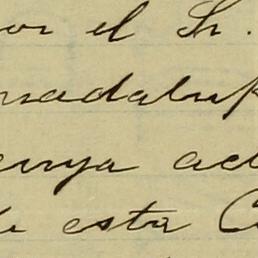 or el Sr.
uadalup
enya ac
de esta C